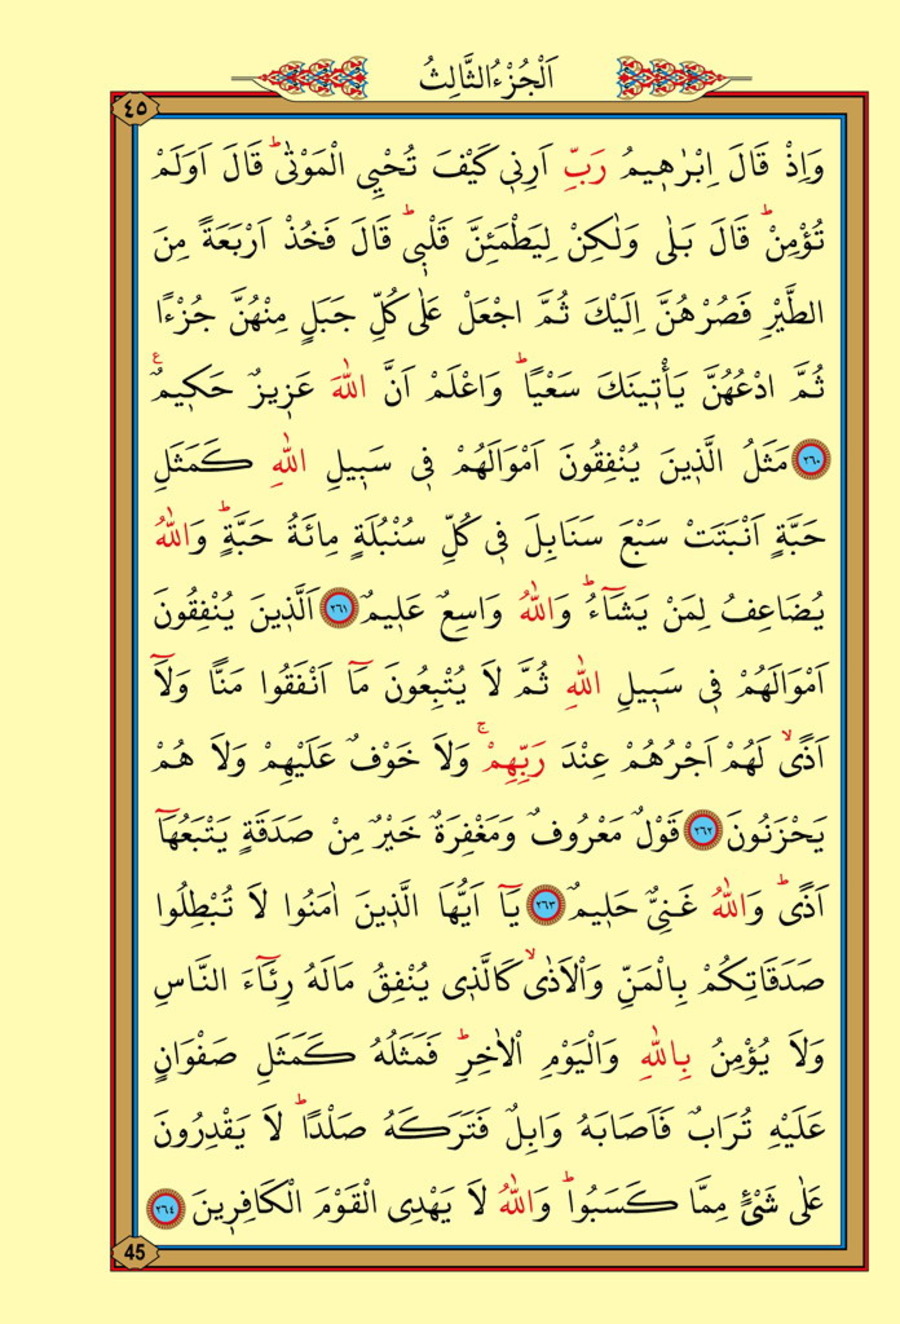 اَلْجُزْءُ الثَّالِثُ
٤٥
وَاِذْ قَالَ اِبْرٰه۪يمُ رَبِّ اَرِن۪ي كَيْفَ تُحْيِي الْمَوْتٰىۜ قَالَ اَوَلَمْ
تُؤْمِنْۜ قَالَ بَلٰى وَلٰكِنْ لِيَطْمَئِنَّ قَلْب۪يۜ قَالَ فَخُذْ اَرْبَعَةً مِنَ
الطَّيْرِ فَصُرْهُنَّ اِلَيْكَ ثُمَّ اجْعَلْ عَلٰى كُلِّ جَبَلٍ مِنْهُنَّ جُزْءًا
ثُمَّ ادْعُهُنَّ يَأْت۪ينَكَ سَعْيًاۜ وَاعْلَمْ اَنَّ اللّٰهَ عَز۪يزٌ حَك۪يمٌ۟
﴿٢٦٠﴾ مَثَلُ الَّذ۪ينَ يُنْفِقُونَ اَمْوَالَهُمْ ف۪ي سَب۪يلِ اللّٰهِ كَمَثَلِ
حَبَّةٍ اَنْبَتَتْ سَبْعَ سَنَابِلَ ف۪ي كُلِّ سُنْبُلَةٍ مِائَةُ حَبَّةٍۜ وَاللّٰهُ
يُضَاعِفُ لِمَنْ يَشَٓاءُۜ وَاللّٰهُ وَاسِعٌ عَل۪يمٌ ﴿٢٦١﴾ اَلَّذ۪ينَ يُنْفِقُونَ
اَمْوَالَهُمْ ف۪ي سَب۪يلِ اللّٰهِ ثُمَّ لَا يُتْبِعُونَ مَٓا اَنْفَقُوا مَنًّا وَلَٓا
اَذًىۙ لَهُمْ اَجْرُهُمْ عِنْدَ رَبِّهِمْۚ وَلَا خَوْفٌ عَلَيْهِمْ وَلَا هُمْ
يَحْزَنُونَ ﴿٢٦٢﴾ قَوْلٌ مَعْرُوفٌ وَمَغْفِرَةٌ خَيْرٌ مِنْ صَدَقَةٍ يَتْبَعُهَٓا
اَذًىۜ وَاللّٰهُ غَنِيٌّ حَل۪يمٌ ﴿٢٦٣﴾ يَٓا اَيُّهَا الَّذ۪ينَ اٰمَنُوا لَا تُبْطِلُوا
صَدَقَاتِكُمْ بِالْمَنِّ وَالْاَذٰىۙ كَالَّذ۪ي يُنْفِقُ مَالَهُ رِئَٓاءَ النَّاسِ
وَلَا يُؤْمِنُ بِاللّٰهِ وَالْيَوْمِ الْاٰخِرِۜ فَمَثَلُهُ كَمَثَلِ صَفْوَانٍ
عَلَيْهِ تُرَابٌ فَاَصَابَهُ وَابِلٌ فَتَرَكَهُ صَلْدًاۜ لَا يَقْدِرُونَ
عَلٰى شَيْءٍ مِمَّا كَسَبُواۜ وَاللّٰهُ لَا يَهْدِي الْقَوْمَ الْكَافِر۪ينَ ﴿٢٦٤﴾
45